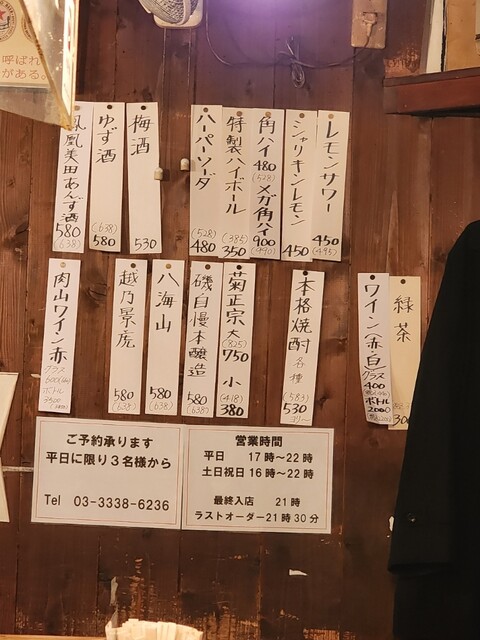 呼ばれ
がある。
レモンサワー 450 (495)
シャリキンレモン 450
角ハイ 480 (528) メガ角ハイ 900 (990)
特製ハイボール (385) 350
ハーパーソーダ (528) 480
梅酒 530
ゆず酒 (638) 580
鳳凰美田あんず酒 580 (638)
緑茶
ワイン(赤・白) グラス 400 ボトル 2000
本格焼酎 各種 (583) 530
菊正宗 大 (825) 750 小 (418) 380
磯自慢本醸造 580 (638)
八海山 580 (638)
越乃景虎 580 (638)
肉山ワイン赤 グラス 600 ボトル
ご予約承ります
平日に限り3名様から
Tel 03-3338-6236
営業時間
平日 17時~22時
土日祝日 16時~22時
最終入店 21時
ラストオーダー21時30分